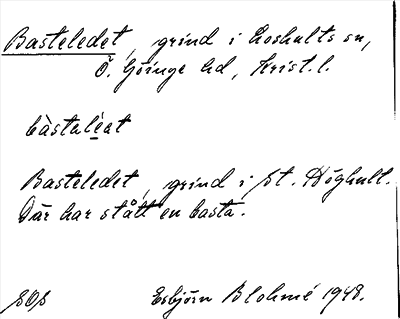 Basteledet, grind i Loshults sn,
Ö. Göinge hd, Krist. l.
bàstaléat
Basteledet, grind i St. Höghult.
Där har stått en basta.
SOS Esbjörn Blohmé 1948.